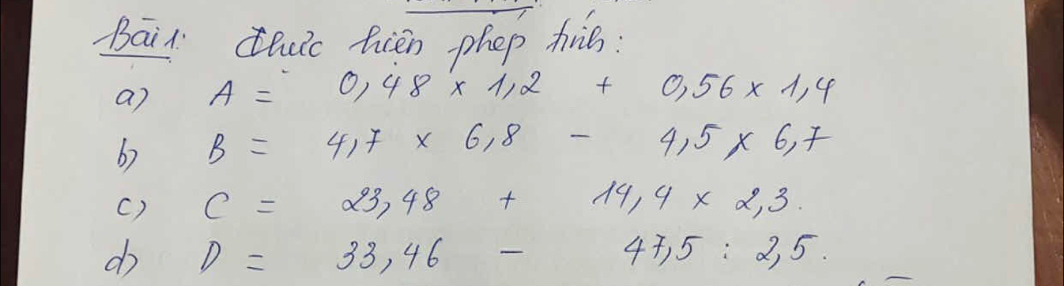 Bài 1: Thực hiện phép tính:
a) A = 0,48 x 1,2 + 0,56 x 1,4
b) B = 4,7 x 6,8 - 4,5 x 6,7
c) C = 23,48 + 14,4 x 2,3.
d) D = 33,46 - 47,5 : 2,5.